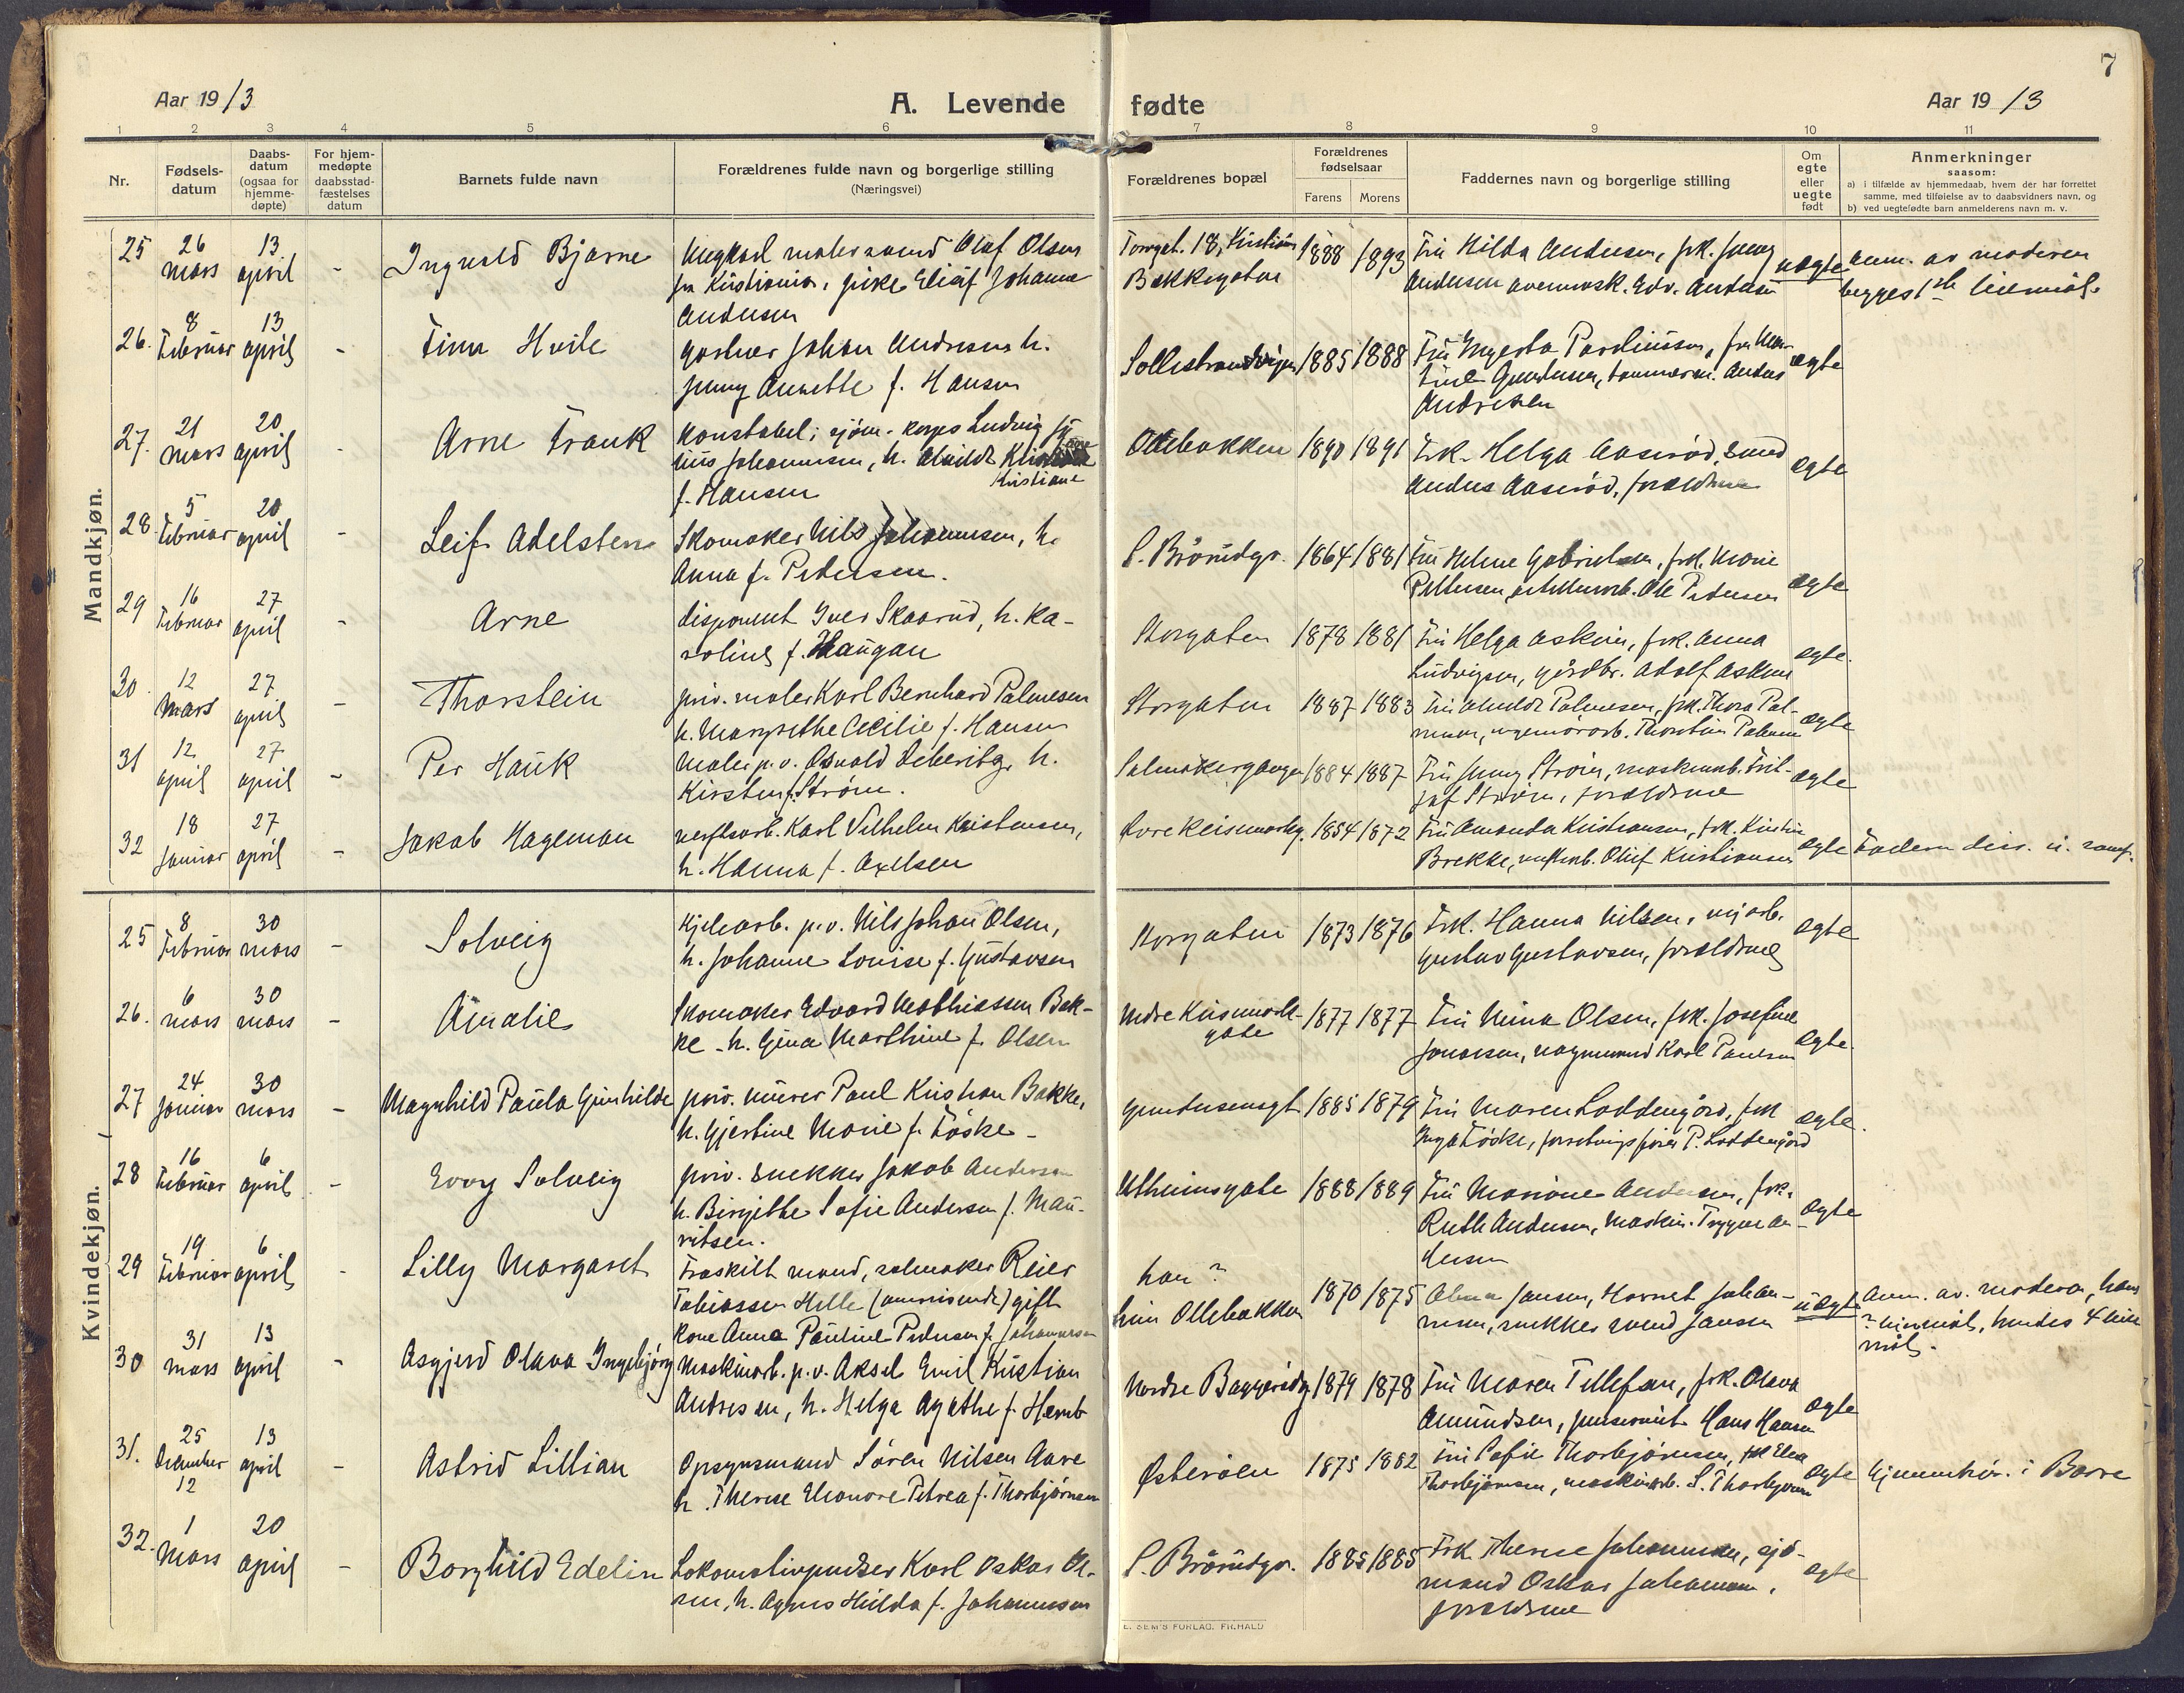 7
Aar 1913
A. Levende fødte
Aar 1913
1 2 3 4 5 6 7 8 9 10 11
Nr.
Fødsels-
datum
Daabs-
datum
(ogsaa for
hjemme-
døpte)
For hjem-
medøpte
daabsstad-
fæstelses
datum
Barnets fulde navn
Forældrenes fulde navn og borgerlige stilling
(Næringsvei)
Forældrenes bopæl
Forældrenes
fødselsaar
Farens Morens
Faddernes navn og borgerlige stilling
Om
egte
eller
uegte
født
Anmerkninger
saasom:
a) i tilfælde av hjemmedaab, hvem der har forrettet
samme, med tilføielse av to daabsvidners navn, og
b) ved uegtefødte barn anmelderens navn m. v.
Mandkjøn.
25 26 mars 13 april - Ingvald Bjarne
Ungkarl malersvend Olaf Olsen
fra Kristiania, pike Elisif Johanne
Andersen
Kristiania
Bakkegaten
1888 1893
Fru Hilda Andersen, frk. Jenny
Andersen Edv. Andersen
uegte
anm. av moderen
begges 1ste leiermål.
26. 8 Februar 13 april - Finn Hvile
gartner Johan Andresen h.
Jenny Annette f. Hansen
Sollistrandveien
1885 1888
Fru Ingerta Paulinssen, fru
Gundersen, Anders
Andresen
egte
27. 21 mars 20 april Arne Frank
Konstabel i sjøm. korps Ludvig
Johannesen, h. Alvilde
Kristiane
f. Hansen
Ollebakken
1890 1891
Frk. Helga Aaserød, smed
Anders Aaserød, forældrene
egte
28. 5 Februar 20 april - Leif Adelsten
Skomaker Nils Johannesen, h.
Anna f. Pedersen.
S. Brårudgt.
1864 1881
Fru Helene Gabrielsen, frk. Marie
Pettersen, Ole Pedersen
egte
29 16 Februar 27 april - Arne
disponent Iver Skaarud, h. Ka-
roline f. Haugan
Storgaten
1878 1881
Fru Helga Askim, frk. Anna
Ludvigsen, gårdbr. Adolf Askim
egte.
30. 12 Mars 27 april - Thorstein
priv. maler Karl Bernhard Palmesen
h. Margrethe Cecilie f. Hansen
Storgaten
1887 1883
Fru Palmesen, frk. Thora Pal-
mesen, Thorstein Palmesen
egte
31 12 april 27 april - Per Hauk
Maler p. v. Osvald h.
Kirsten f. Strøm.
Salmakergangen
1884 1887
Fru Jenny Strøm, maskinarb. Frit-
jof Strøm, forældrene
egte
32 18 Januar 27 april - Jakob Hageman
verftsarb. Karl Vilhelm Kristensen,
h. Hanna f. Axelsen
1854 1872
Fru Amanda Kristiansen, frk. Kirstine
Brekke, verftsarb. Oluf Kristiansen
egte
Faderen diss.
Kvindekjøn.
25 8 Februar 30 mars - Solveig
Kjelearb. p. v. Nils Johan Olsen,
h. Johanne Louise f. Gustavsen
Storgaten
1873 1876
Frk. Hanna Nilsen, veiarb.
Gustav Gustavsen, forældrene
egte
26. 6 mars 30 mars - Amalie
Skomaker Edvard Mathiassen Bak-
ke - h. Gina Marthine f. Olsen
gate
1877 1877
Fru Mina Olsen, frk. Josefine
Jonassen, vognmand Karl Paulsen
egte.
27 24 Januar 30 mars - Magnhild Paula Gunhilde
priv. murer Paul Kristian Bakke,
h. Gjertine Marie f. Föske -
Gundersensgt
1885 1879
Fru Maren Loddengård, frk.
Inga Föske, forretningsfører P. Loddengård
egte.
28 16 Februar 6 april - Evvy Solveig
priv. snekker Jakob Andersen
h. Birgithe Sofie Andersen f. Mau-
ritsen.
Utheimsgate
1888 1889
Fru Mariane Andersen, frk.
Ruth Andersen, Maskin. Trygve An-
dersen
egte
29 19 Februar 6 april - Lilly Margaret
Fraskilt mand, salmaker Reier
Tobiassen Helle (omreisende) gift
kone Anna Pauline Pedersen f. Johannesen
han ?
hun Ollebakken
1870 1875
Alma Jansen, Harriet Johan-
nesen, snekkersvend Jansen
uegte
Anm. av. modern, hans
? leiermål, hendes 4 leier-
mål.
30 31 mars 13 april - Asgjerd Olava Ingebjørg
Maskinarb. p. v. Aksel Emil Kristian
Andresen, h. Helga Agathe f. Hernb
Nordre Baggerødg
1879 1878
Fru Maren Tellefsen, frk. Olava
Amundsen, pensionist Hans Hansen
egte
31. 25 December 12 13 april - Astrid Lillian
Opsynsmand Søren Nilsen Aare
h. Therese Eleonore Petrea f. Thorbjørnsen
Østerøien
1875 1882
Fru Sofie Thorbjørnsen, frk. Elea
Thorbjørnsen, maskinarb. S. Thorbjørnsen
egte
hjemmehør. i Borre
32. 1 Mars 20 april - Borghild Edelin
Lokomotivpudser Karl Oskar Ol-
sen, h. Agnes Hilda f. Johannesen
S. Brårudgt.
1885 1885
Frk. Therese Johannesen, sjø-
mand Oskar Johannesen,
forældrene
egte
E. SEM'S FORLAG. FR.HALD